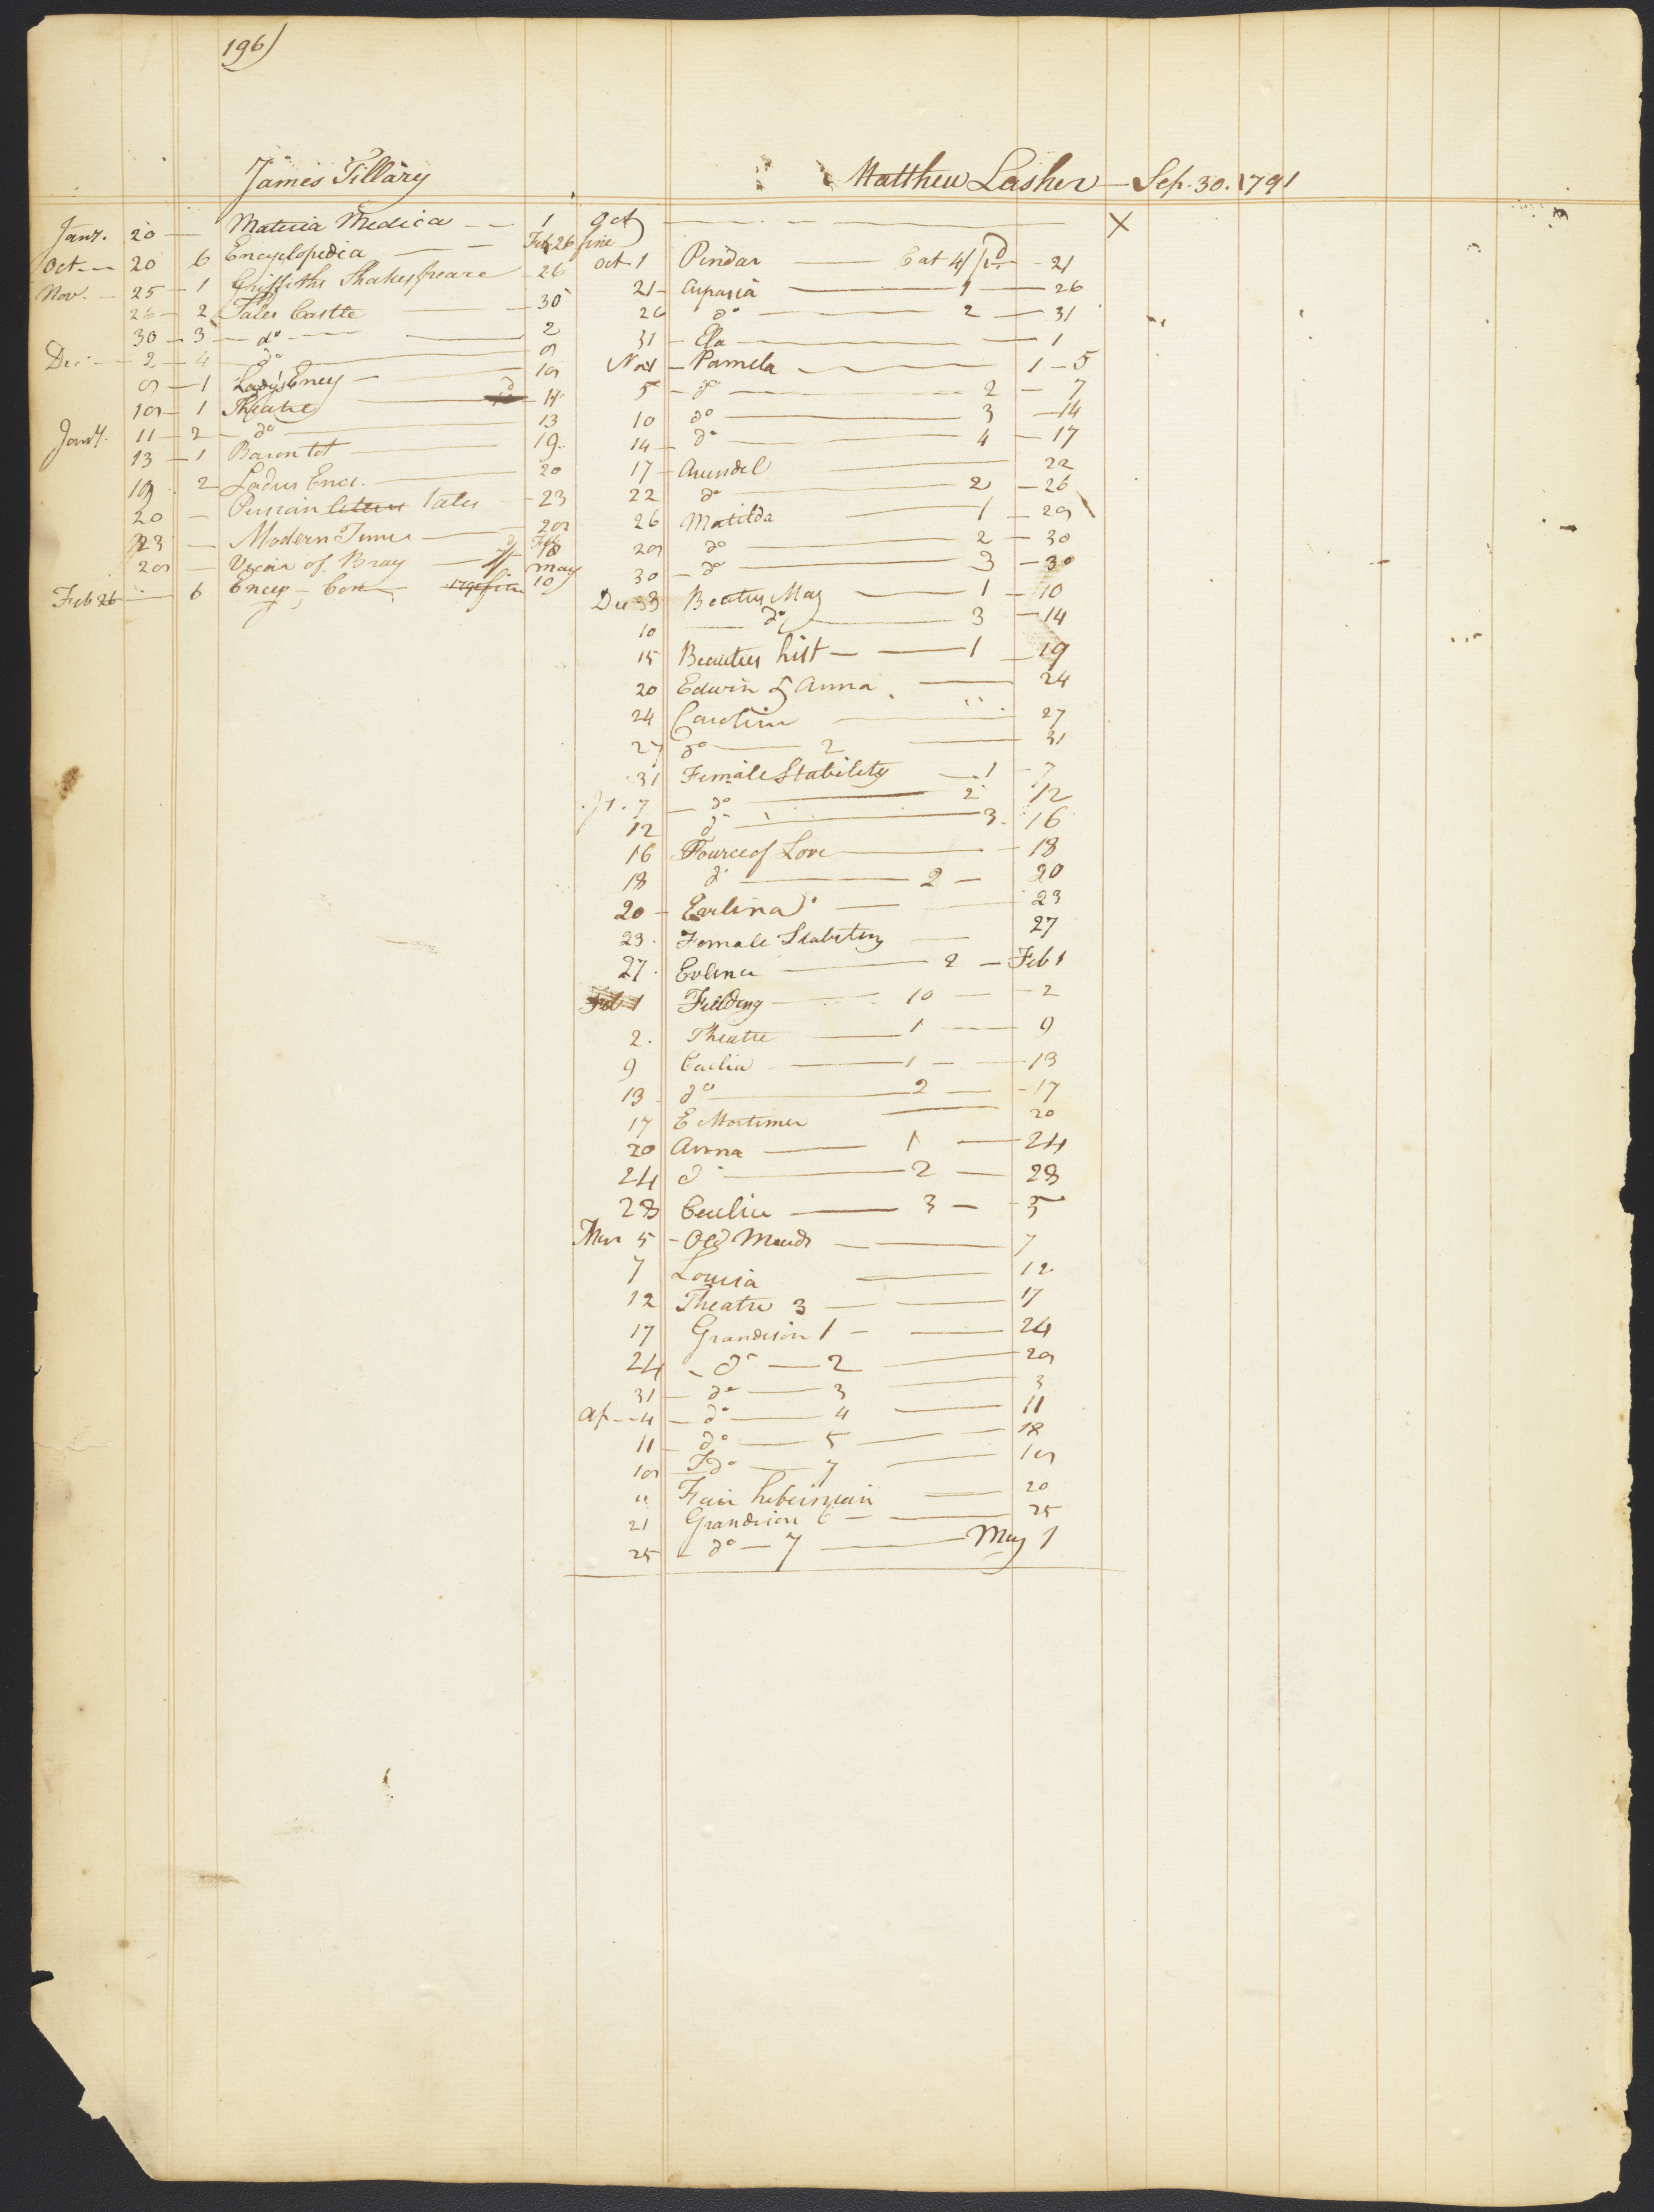 196)
James Tillary
Jany. 20 — Materia Medica — — 1
Oct — 20 6 Encyclopedia — — Feb 26 fine
Nov. — 25 — 1 Griffiths Shakespeare — 26
26 — 2 Tales Castle — 30
30 — 3 — do — 2
Dec — 2 — 4 — do — 9
9 — 1 Lady's Ency — 19
19 — 1 Theatre —
Jany. 11 — 2 — do — 13
13 — 1 — 19
19 2 Ladies Ency. — 20
20 — Persian letters Tales — 23
23 — Modern Times — 29
29 — Vicar of Bray —
Feb 26 — 6 Ency — May 10
Matthew Lasher — Sep. 30. 1791
Oct — X
Oct 1 Pindar — Cat 4/ pd — 21
21 — Aspasia — 1 — 26
26 do — 2 — 31
31 — Ela — 1
Nov 1 — Pamela — 1 — 5
5 — do — 2 — 7
10 do — 3 — 14
14 — do — 4 — 17
17 — Arundel — 22
22 do — 2 — 26
26 Matilda — 1 — 29
29 do — 2 — 30
30 — do — 3 — 30
Dec Beauties Mag — 1 — 10
10 — do — 3 — 14
15 Beauties hist — 1 — 19
20 Edwin & Anna — 24
24 Caroline — 27
27 do — 2 — 31
31 Female Stability — 1 — 7
Ja. 7 — do — 2 12
12 do — 3. 16
16 Source of Love — 18
18 do — 2 — 20
20 — Evelina — 23
23. Female Stability — 27
27. Evlina — 2 — Feb 1
Feb 1 Fielding — 10 — 2
2. Theatre — 1 — 9
9 Cecilia — 1 — 13
13 do — 2 — 17
17 E Mortimer — 20
20 Anna — 1 — 24
24 do — 2 — 28
28 Cecilia — 3 — 5
Mar 5 — Old Maids — 7
7 Louisa — 12
12 Theatre 3 — 17
17 Grandison 1 — 24
24 — do — 2 — 29
31 — do — 3 — 3
Ap — 4 — do — 4 — 11
11 — do — 5 — 18
19 do — 7 — 19
" Fair hibernian — 20
21 Grandison 6 — 25
25 — do — 7 — May 1